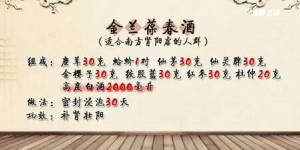 金兰葆春酒
(适合南方肾阳虚的人群)
组成：鹿茸30克 蛤蚧1对 仙茅30克 仙灵脾30克
金樱子30克 菟丝30克 红参30克 杜仲20克
高度白酒2000毫升
做法：密封浸泡30天
功效：补肾壮阳